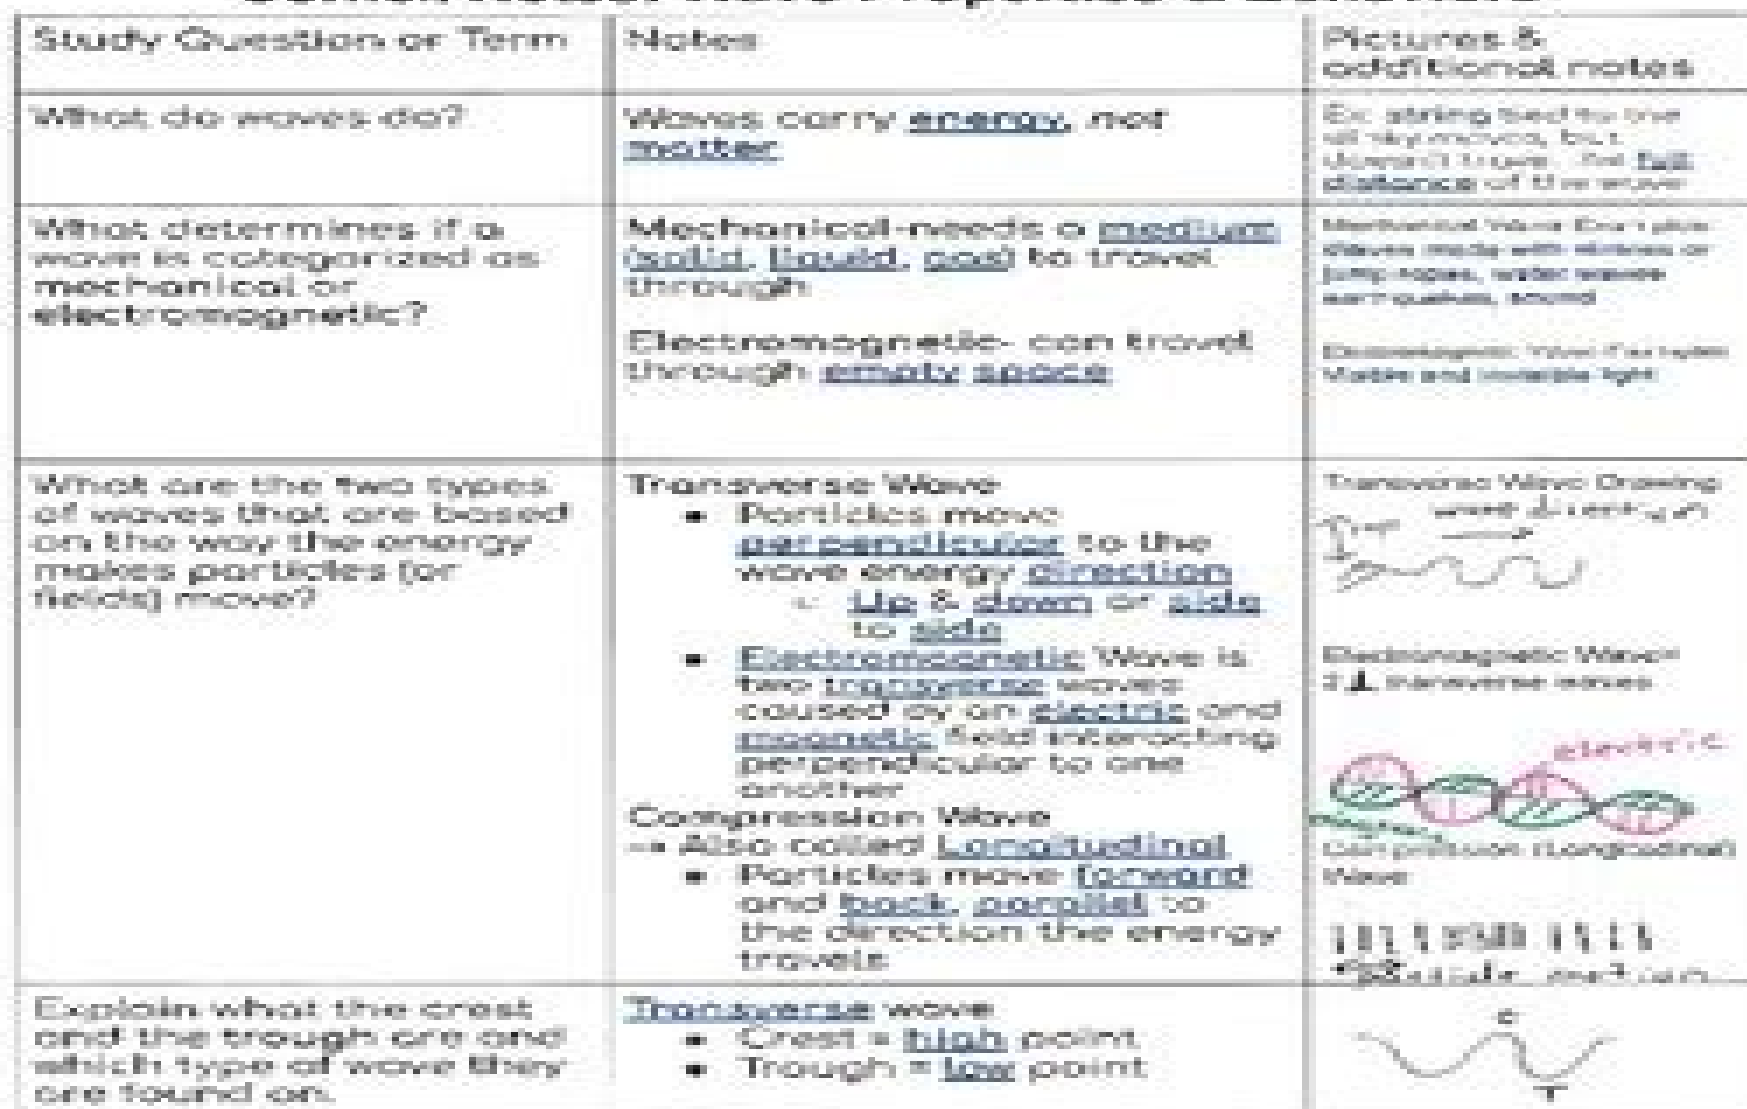 Study Question or Term
Notes
Pictures &
additional notes
What do waves do?
Waves carry energy, not
matter
Ex: string tied to the
distance of the wave
What determines if a
wave is categorized as
mechanical or
electromagnetic?
Mechanical-needs a medium
(solid, liquid, gas) to travel
through
Electromagnetic- can travel
through empty space
Mechanical Wave Examples
Waves made with slinkies or
jump ropes, water waves
earthquakes, sound
Electromagnetic Wave Examples
Visible and invisible light
What are the two types
of waves that are based
on the way the energy
makes particles (or
fields) move?
Transverse Wave
• Particles move
perpendicular to the
wave energy direction
Up & down or side
to side
• Electromagnetic Wave is
two transverse waves
caused by an electric and
magnetic field interacting
perpendicular to one
another
Compression Wave
→ Also called Longitudinal
• Particles move forward
and back, parallel to
the direction the energy
travels
Transverse Wave Drawing
wave direction
Electromagnetic Wave=
2 ⊥ transverse waves
electric
Compression (Longitudinal)
Wave
particle motion
Explain what the crest
and the trough are and
which type of wave they
are found on.
Transverse wave
• Crest = high point
• Trough = low point
C
T